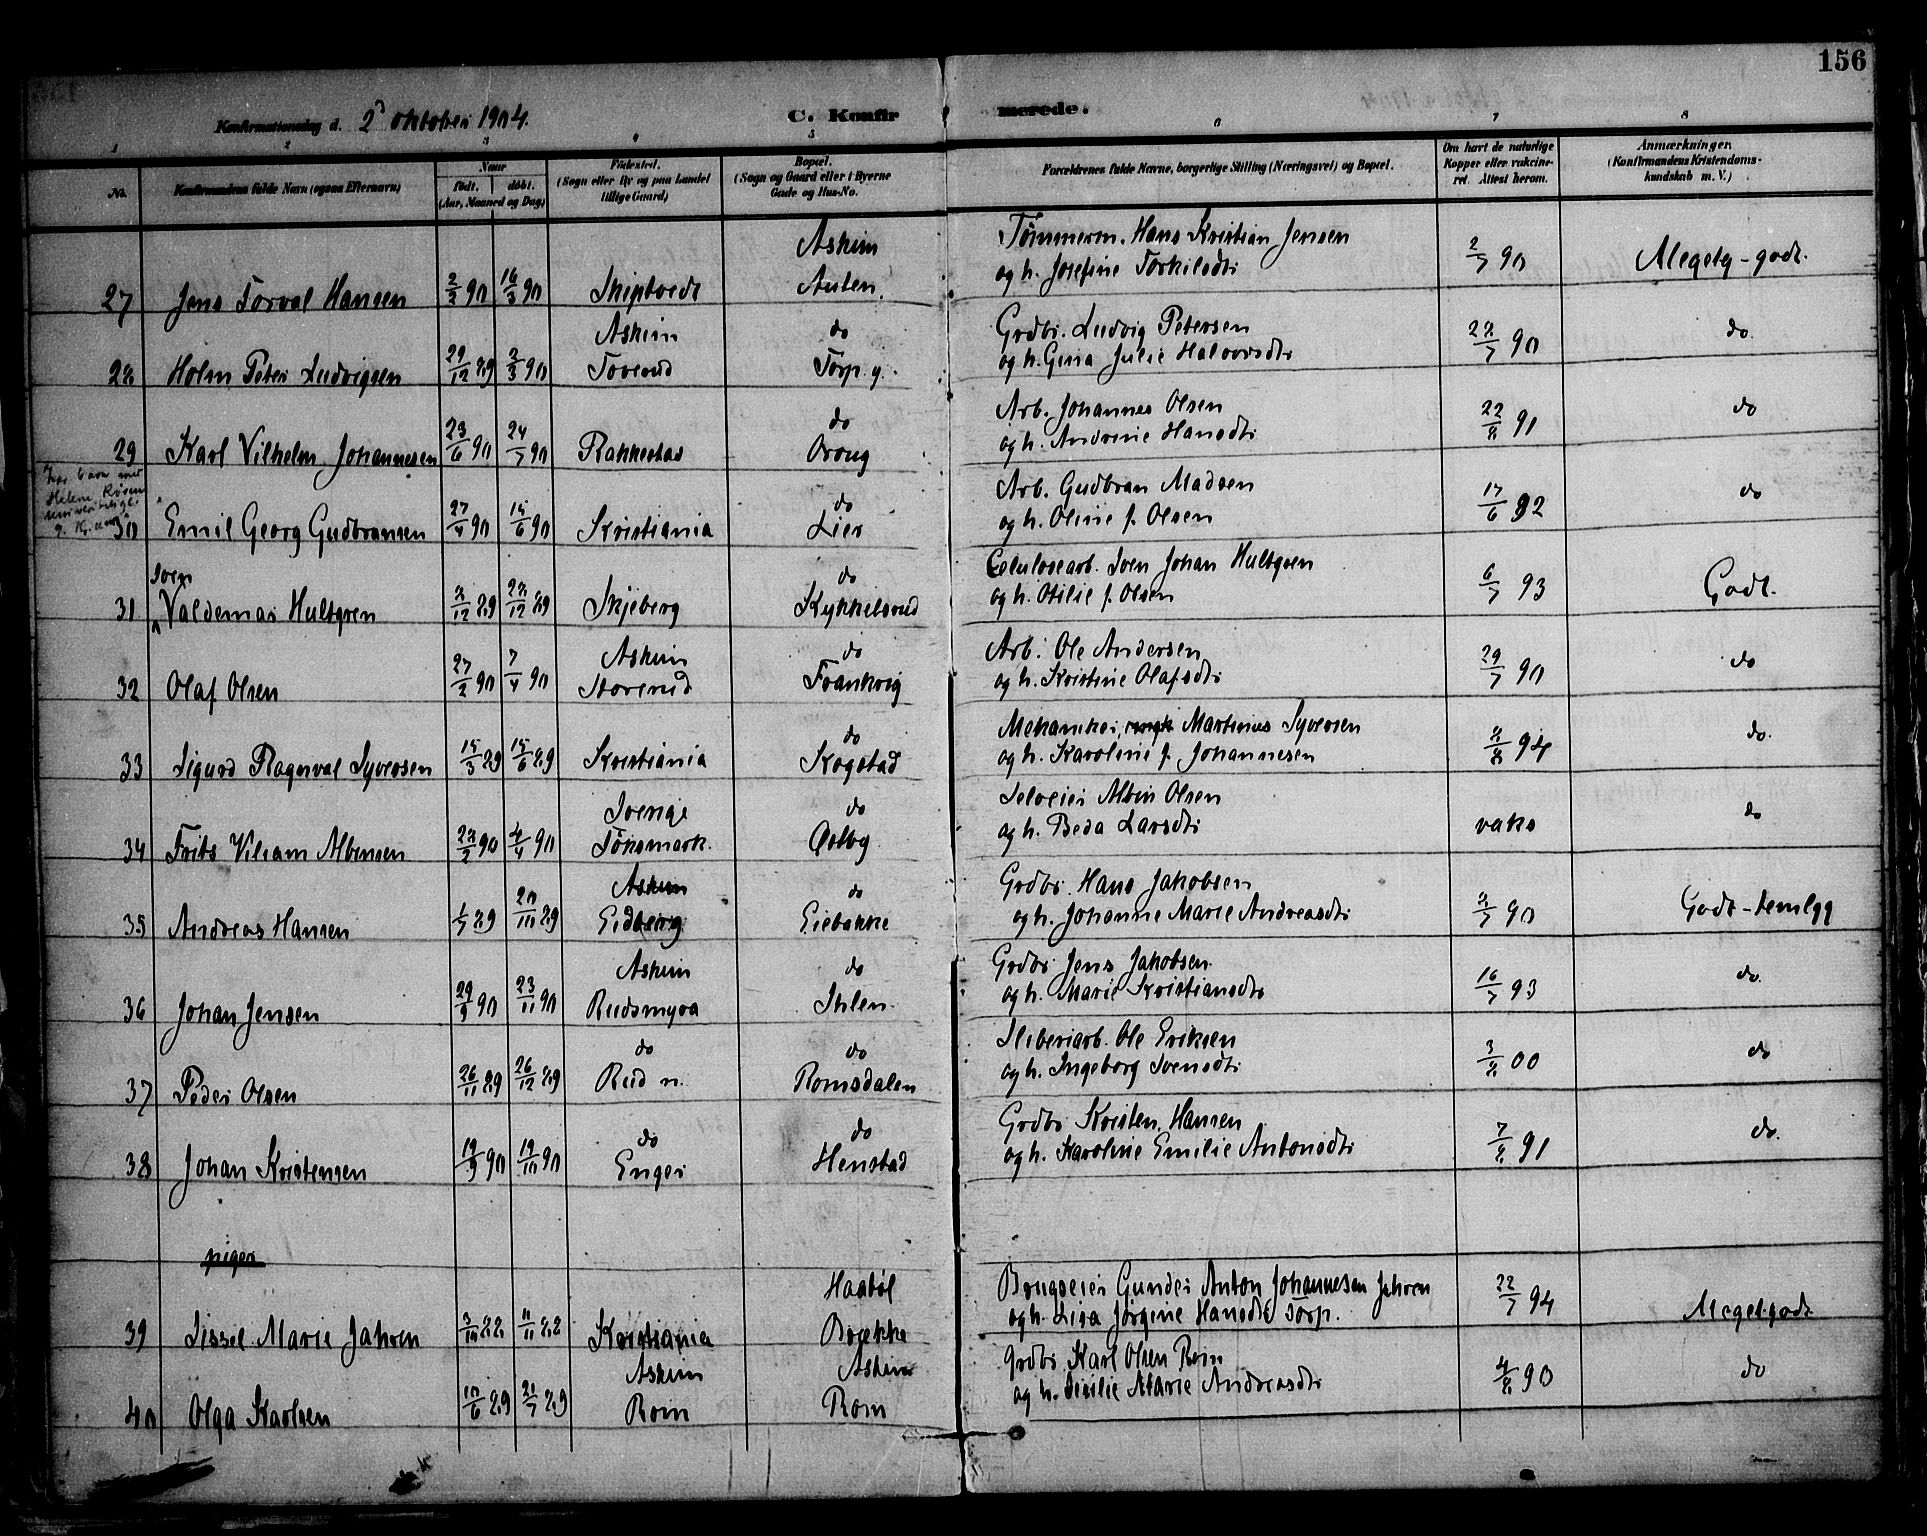 156
Konfirmationsdag d. 2 oktober 1904.
C. Konfir merede.
1 2 3 4 5 6 7 8
No.
Konfirmandens fulde Navn (ogsaa Efternavn)
Naar
født. døbt.
(Aar, Maaned og Dag)
Fødested.
(Sogn eller By og paa Landet
tillige Gaard)
Bopæl.
(Sogn og Gaard eller i Byerne
Gade og Hus-No.
Forældrenes fulde Navne, borgerlige Stilling (Næringsvei) og Bopæl.
Om havt de naturlige
Kopper eller vakcine-
ret. Attest herom.
Anmærkninger.
(Konfirmandens Kristendoms-
kundskab m. V.)
Askim Tømmerm. Hans Kristian Jensen
27 Jens Torval Hansen 2/2 90 16/3 90 Skiptvedt Auten. og h. Josefine Torkilsdtr 2/7 90 Meget g - godt.
Askim do Grdbr. Ludvig Petersen
28 Holm Peter Ludvigsen 29/12 89 2/3 90 Toverud Torp. g. og h. Gina Julie Halvorsdtr 28/7 90 do.
do Arb. Johannes Olsen
29 Karl Vilhelm Johannesen 23/6 90 24/7 90 Rakkestad Oraug og h. Andrine Hansdtr 22/8 91 do
Helene
do Arb. Gudbran Madsen
30 Emil Georg Gudbransen 27/4 90 15/6 90 Kristiania Lier og h. Oline f. Olsen 17/6 92 do
Sven do Celulosearb. Sven Johan Hultgren
31 Valdemar Hultgren 8/12 89 28/12 89 Skjeberg Kykkelsrud og h. Otilie f. Olsen 6/7 93 Godt.
Askim do Arb. Ole Andersen
32 Olaf Olsen 27/2 90 7/4 90 Storerud Frankrig og h. Kristine Olafsdtr 29/7 90 do
do Mekaniker, Martinius Syversen
33 Sigurd Ragnval Syversen 15/3 89 15/6 89 Kristiania Kogstad og h. Karoline f. Johannesen 8/8 94 do.
Sverige do Selveier Albin Olsen
34 Frits Viliam Albinsen 28/2 90 4/4 90 Tøksmark. Østby og h. Beda Larsdtr vaks do
Askim do Grdbr. Hans Jakobsen
35 Andreas Hansen 1/7 89 20/10 89 Eidberg Eiebakke og h. Johanne Marie Andreasdtr 8/7 90 Godt - temlgg
Askim do Grdbr Jens Jakobsen
36 Johan Jensen 29/9 90 23/11 90 Rudsmyra Ihlen. og h. Marie Kristiansdtr 16/7 93 do.
do do Sliberiarb. Ole Eriksen
37 Peder Olsen 26/11 89 26/12 89 Rud n. Romsdalen og h. Ingeborg Svensdtr 3/8 00 do
do do Grdbr Kristen Hansen
38 Johan Kristensen 19/9 90 19/10 90 Enger Henstad og h. Karoline Emilie Antonsdtr 7/8 91 do.
piger
Haabøl Brugseier Gunder Anton Johannesen Jahren
39 Sissel Marie Jahren 3/10 88 11/11 88 Kristiania Brekke og h. Lisa Jørgine Hansdtr Torp. 22/7 94 Meget godt
Askim Askim Grdbr Karl Olsen Rom
40 Olga Karlsen 10/6 89 21/7 89 Rom Rom og h. Sicilie Marie Andreasdtr 4/8 90 do